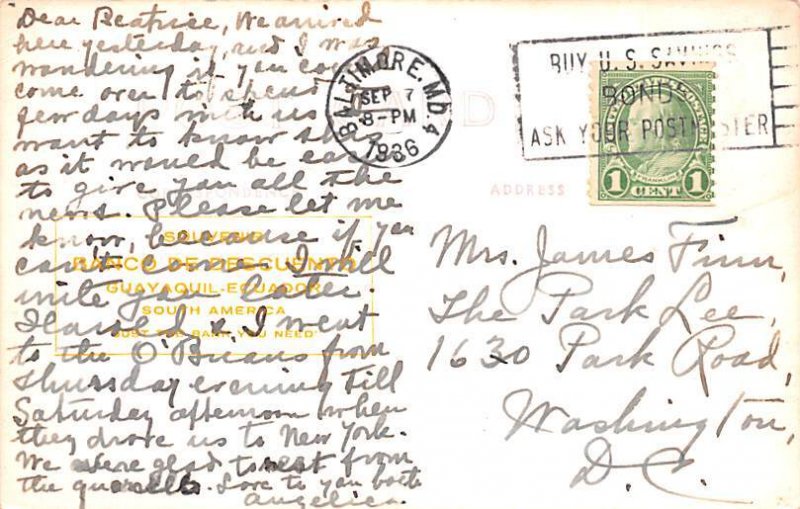 Dear Beatrice, We arrived
here yesterday, and I was
wondering if you could
come over to spend
few days with us
want to know this
as it would be easy
to give you all the
news. Please let me
know, because if you
can't come I will
write you later.
Harold & I went
to the O'Brians from
Thursday evening till
Saturday afternoon when
they drove us to New York.
We were glad to rest from
the Love to you both
Angelica.
BALTIMORE, M.D. 4
SEP 7
8-PM
1936
BUY U.S. SAVINGS
BOND
ASK YOUR POSTMASTER
1 CENT 1
FRANKLIN
CORRESPONDENCE
ADDRESS
SOUVENIR
BANCO DE DESCUENTO
GUAYAQUIL-ECUADOR
SOUTH AMERICA
"JUST THE BANK YOU NEED"
Mrs. James Finn,
The Park Lee,
1630 Park Road,
Washington,
D.C.